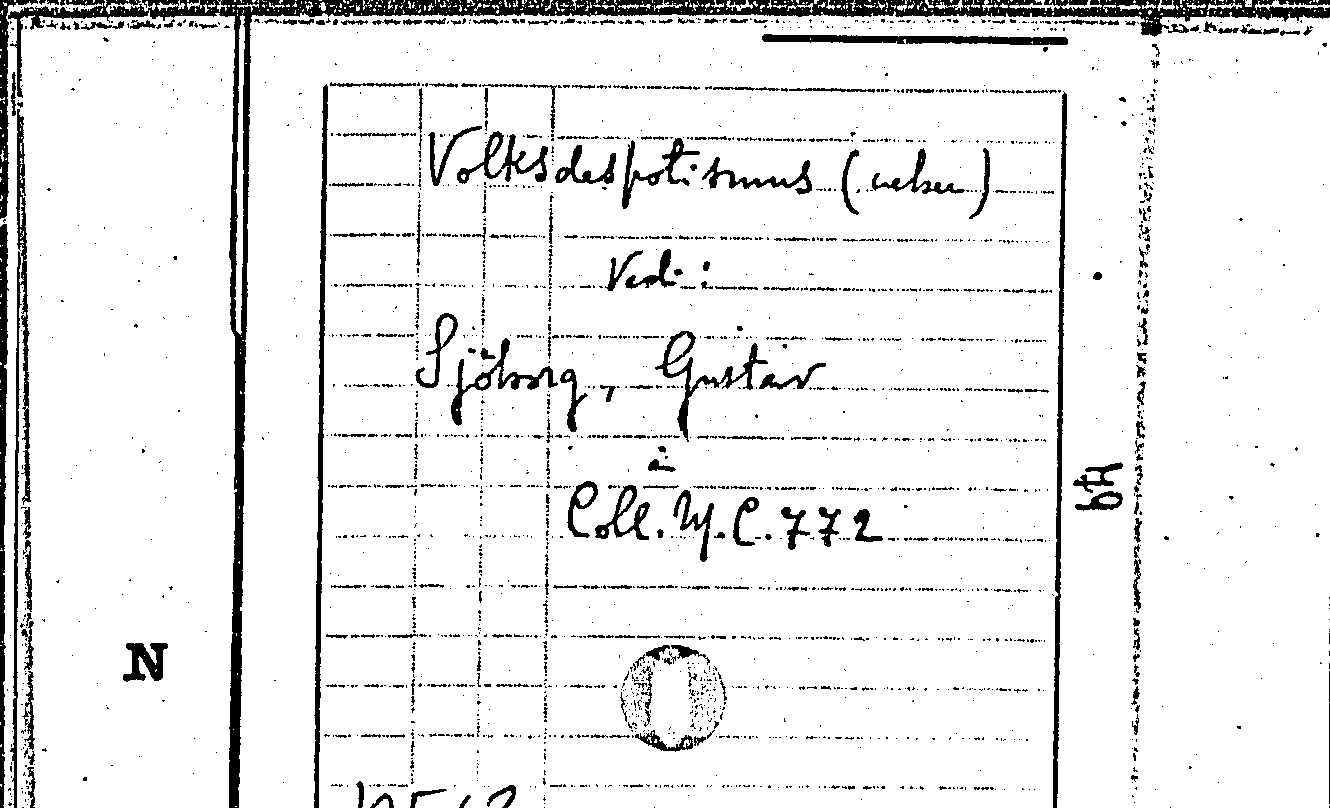 Volksdespotismus (ueber)
Vedi:
Sjöborg, Gustav
in
Coll. M. C. 772
N